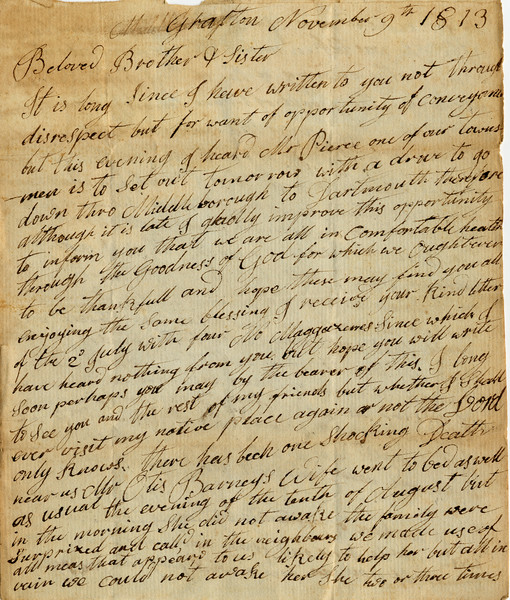 Grafton November 9th 1813
Beloved Brother & Sister
It is long Since I have written to you not through
disrespect but for want of opportunity of Conveyance
but this evening I heard Mr Pierce one of our towns
men is to Set out tomorrow with a drove to go
down thro Middleborough to Dartmouth therefore
although it is late I gladly improve this opportunity
to inform you that we are all in Comfortable health
through the Goodness of God for which we Ought ever
to be thankfull and hope these may find you all
enjoying the Same blessing I receivd your Kind letter
of the 2d July with four Mo Maggazenes Since which I
have heard nothing from you but hope you will write
Soon perhaps you may by the bearer of this. I long
to See you and the rest of my friends but whether I Shall
ever visit my native peace again or not the Lord
only knows. there has been one Shocking Death
near us Mr Otis Barneys Wife went to bed as well
as usual the evening of the tenth of August but
in the morning She did not awake the family were
Surprized and calld in the neighbours we made use of
all means that appeard to us likely to help her but all in
vain we could not awake her She two or three times